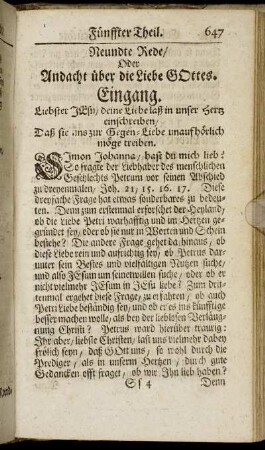 Fünffter Theil. 647
Neundte Rede/
Oder
Andacht über die Liebe GOttes.
Eingang.
Liebster JEsu/ deine Liebe laß in unser Hertz
einschreiben/
Daß sie uns zur Gegen-Liebe unaufhörlich
möge treiben.
SImon Johanna/ hast du mich lieb?
So fragte der Liebhaber des menschlichen
Geschlechts Petrum vor seinen Abschied
zu dreyenmalen/ Joh. 21/ 15. 16. 17. Diese
dreyfache Frage hat etwas sonderbares zu bedeu-
ten. Denn zum erstenmal erforschet der Heyland/
ob die Liebe Petri warhafftig und im Hertzen ge-
gründet sey/ oder ob sie nur in Worten und Schein
bestehe? Die andere Frage gehet da hinaus/ ob
diese Liebe rein und aufrichtig sey/ ob Petrus dar-
unter sein Bestes und vielfältigen Nutzen suche/
und also JEsum um seinetwillen suche/ oder ob er
nicht vielmehr JEsum in JEsu liebe? Zum drit-
tenmal ergehet diese Frage/ zu erfahren/ ob auch
Petri Liebe beständig sey/ und ob er es ins künfftige
besser machen wolle/ als bey der lieblosen Verläug-
nung Christi? Petrus ward hierüber traurig:
Ihr aber/ liebste Christen/ last uns vielmehr dabey
frölich seyn/ daß GOtt uns/ so wohl durch die
Prediger/ als in unserm Hertzen/ durch gute
Gedancken offt fraget/ ob wir Ihn lieb haben?
Ss 4 Denn